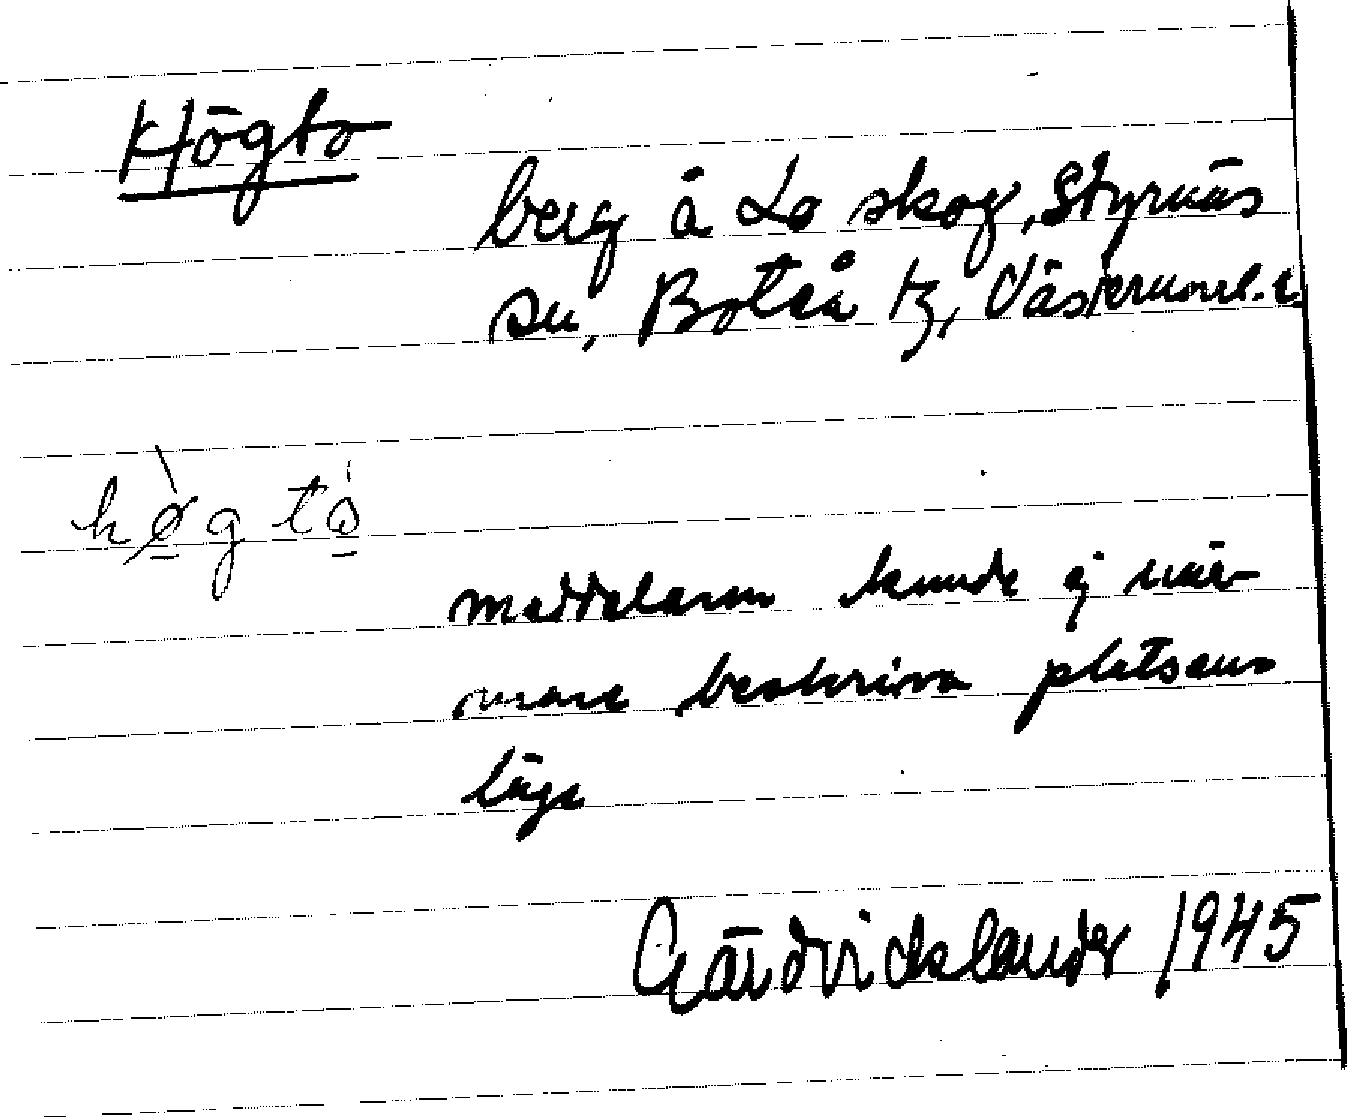 Högto
berg å Lo skog, Styrnäs
sn, Boteå tg, Västernorrl. l.
hø̀g tó
meddelaren kunde ej när-
mare beskriva platsens
läge
Gärdvidslander 1945